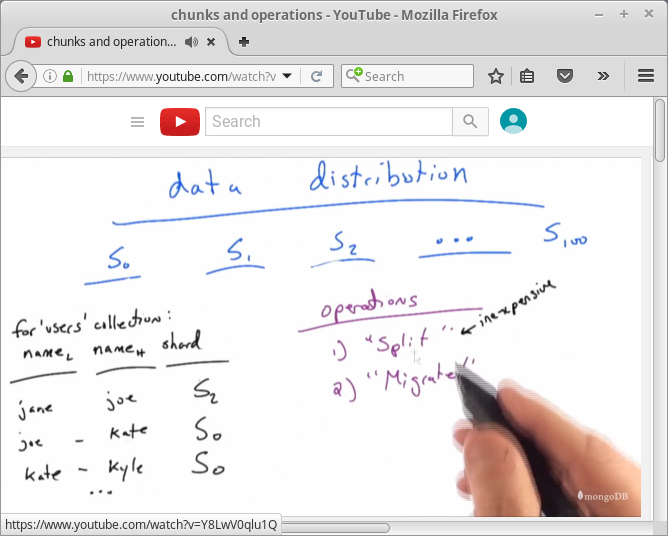 chunks and operations - YouTube - Mozilla Firefox
chunks and operation...
https://www.youtube.com/watch?v
Search
Search
data distribution
S0 S1 S2 ... S100
for 'users' collection:
nameL nameH shard
jane joe S2
joe - kate S0
kate - kyle S0
...
operations
1) "Split" inexpensive
2) "Migrate"
mongoDB
https://www.youtube.com/watch?v=Y8LwV0qlu1Q